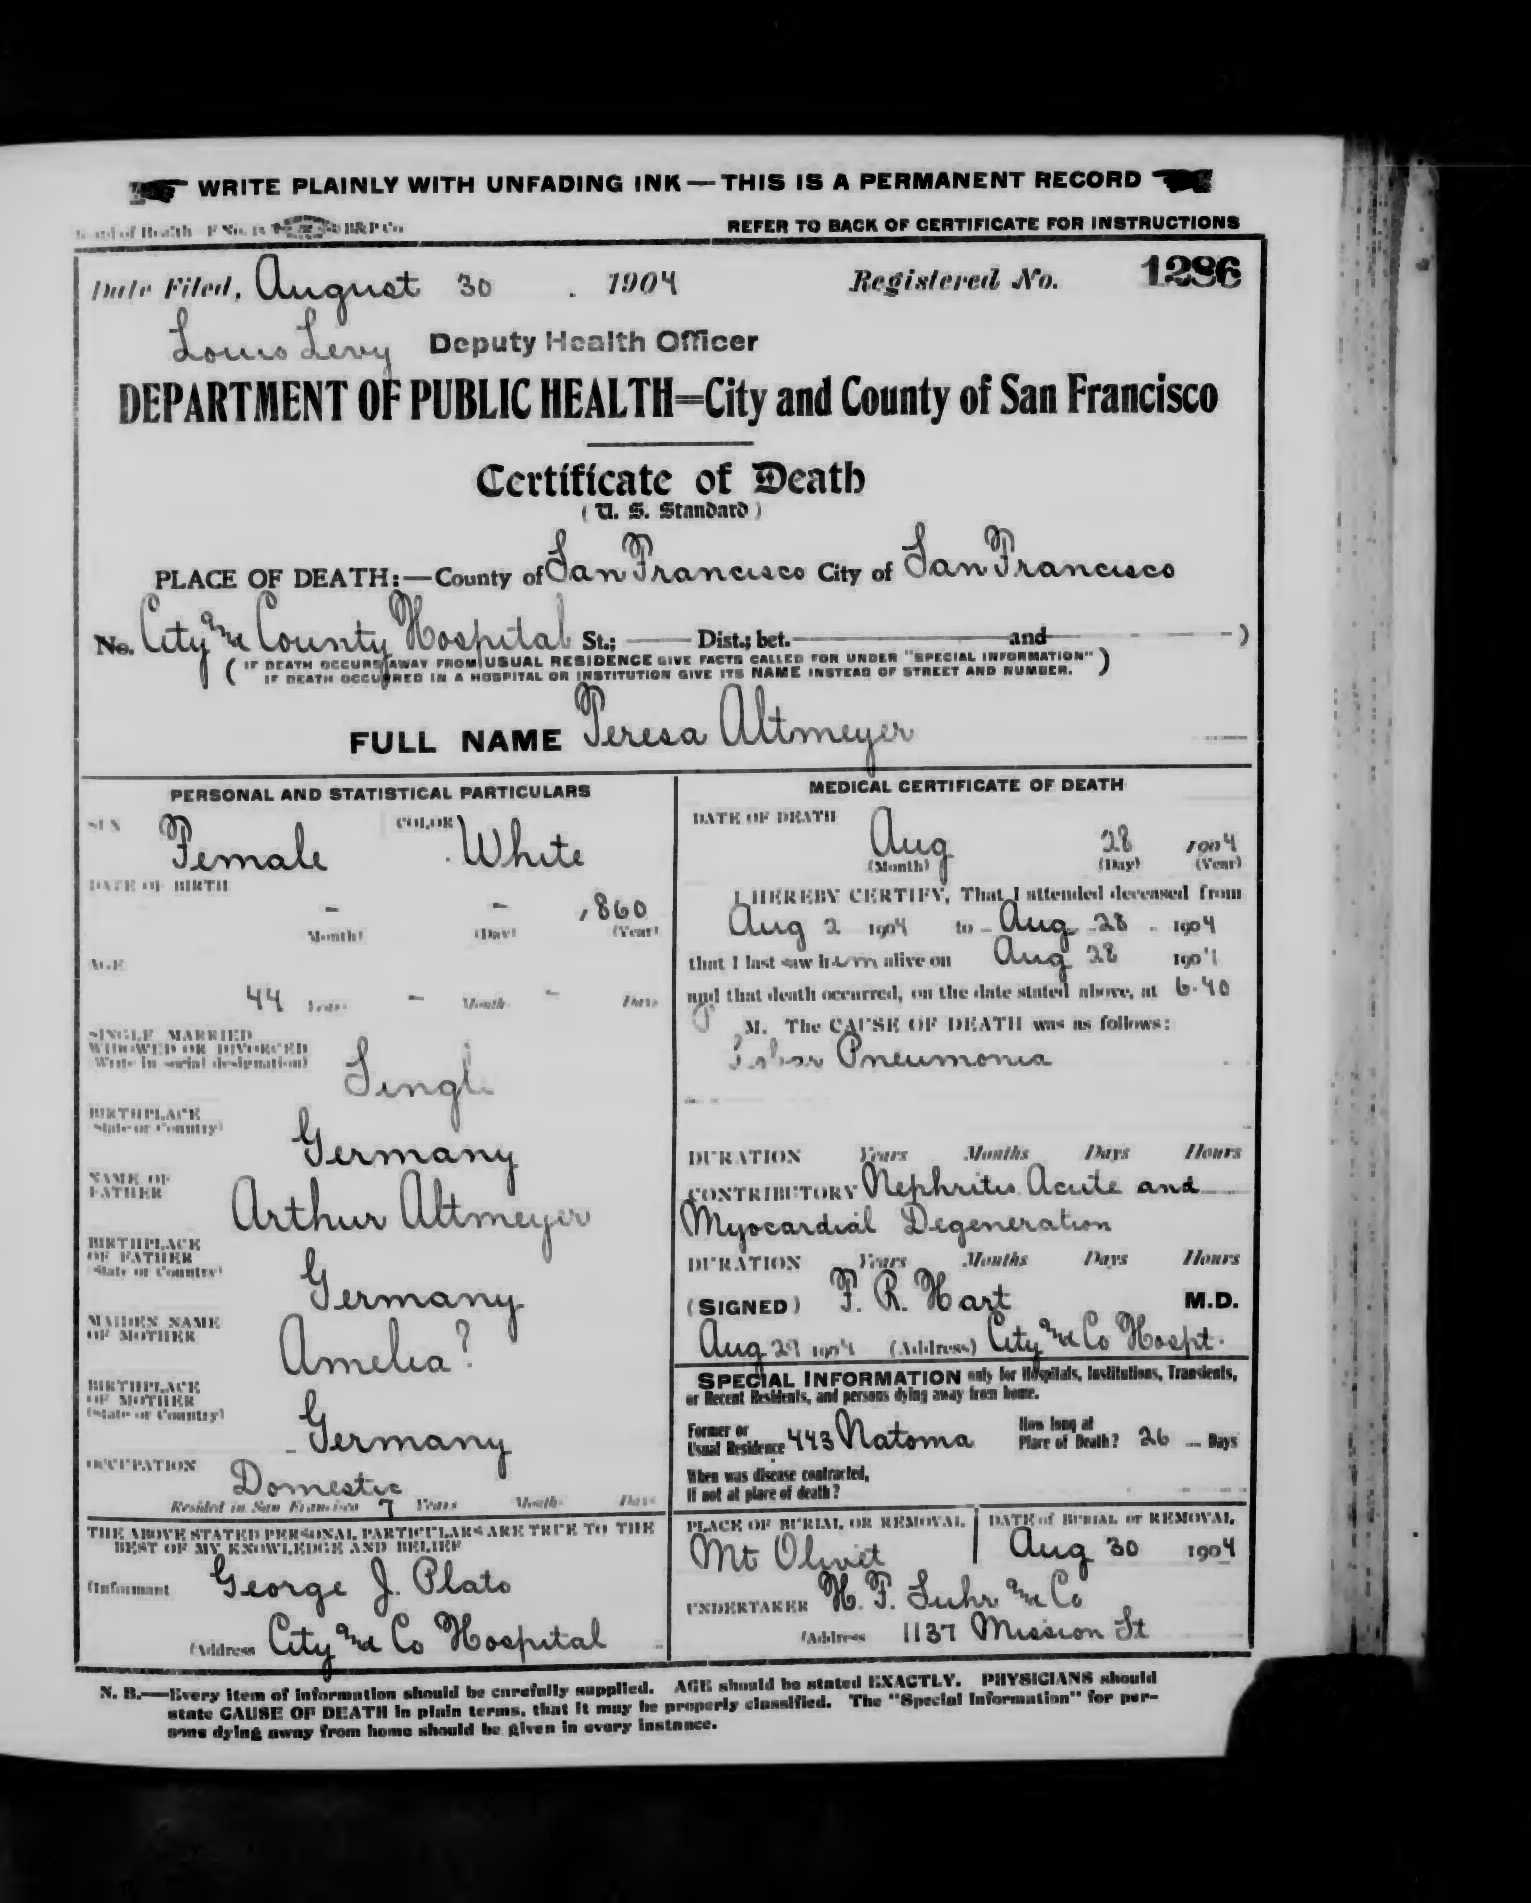 WRITE PLAINLY WITH UNFADING INK — THIS IS A PERMANENT RECORD
Board of Health F No. B&P Co
REFER TO BACK OF CERTIFICATE FOR INSTRUCTIONS
Date Filed, August 30 . 1904 Registered No. 1286
Louis Levy Deputy Health Officer
DEPARTMENT OF PUBLIC HEALTH=City and County of San Francisco
Certificate of Death
(U. S. Standard)
PLACE OF DEATH:—County of San Francisco City of San Francisco
No. City and County Hospital St.; Dist.; bet. and )
( IF DEATH OCCURS AWAY FROM USUAL RESIDENCE GIVE FACTS CALLED FOR UNDER "SPECIAL INFORMATION" )
IF DEATH OCCURRED IN A HOSPITAL OR INSTITUTION GIVE ITS NAME INSTEAD OF STREET AND NUMBER.
FULL NAME Teresa Altmeyer
PERSONAL AND STATISTICAL PARTICULARS
SEX Female COLOR White
DATE OF BIRTH
- - 1860
(Month) (Day) (Year)
AGE
44 Years - Months - Days
SINGLE MARRIED
WIDOWED OR DIVORCED
(Write in social designation) Single
BIRTHPLACE
(State or Country) Germany
NAME OF
FATHER Arthur Altmeyer
BIRTHPLACE
OF FATHER
(State or Country) Germany
MAIDEN NAME
OF MOTHER Amelia ?
BIRTHPLACE
OF MOTHER
(State or Country) Germany
OCCUPATION Domestic
Resided in San Francisco 7 Years Months Days
THE ABOVE STATED PERSONAL PARTICULARS ARE TRUE TO THE
BEST OF MY KNOWLEDGE AND BELIEF
(Informant George J. Plato
(Address City and Co Hospital
MEDICAL CERTIFICATE OF DEATH
DATE OF DEATH
Aug 28 1904
(Month) (Day) (Year)
I HEREBY CERTIFY, That I attended deceased from
Aug 2 1904 to Aug 28 1904
that I last saw him alive on Aug 28 1904
and that death occurred, on the date stated above, at 6.40
P M. The CAUSE OF DEATH was as follows:
Lobar Pneumonia
DURATION Years Months Days Hours
CONTRIBUTORY Nephritis Acute and
Myocardial Degeneration
DURATION Years Months Days Hours
(SIGNED) F. R. Hart M.D.
Aug 29 1904 (Address) City and Co Hospt.
SPECIAL INFORMATION only for Hospitals, Institutions, Transients,
or Recent Residents, and persons dying away from home.
Former or
Usual Residence 443 Natoma
How long at
Place of Death? 26 Days
When was disease contracted,
If not at place of death?
PLACE OF BURIAL OR REMOVAL
Mt Olivet
DATE of BURIAL or REMOVAL
Aug 30 1904
UNDERTAKER H. F. Suhr and Co
(Address 1137 Mission St
N. B.—Every item of information should be carefully supplied. AGE should be stated EXACTLY. PHYSICIANS should
state CAUSE OF DEATH in plain terms, that it may be properly classified. The "Special Information" for per-
sons dying away from home should be given in every instance.